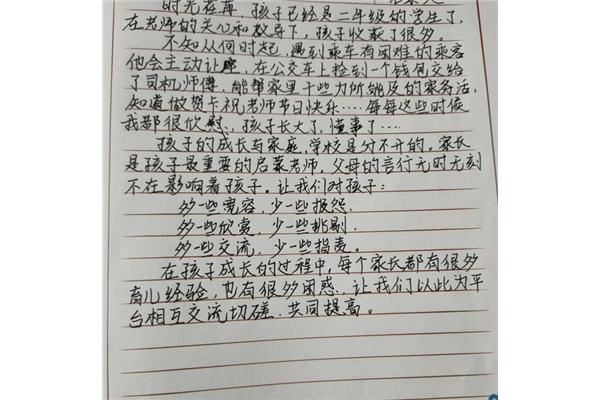 时光荏苒，孩子已经是二年级的学生了，
在老师的关心和教导下，孩子收获了很多。
不知从何时起，遇到乘车有困难的乘客
他会主动让座，在公交车上捡到一个钱包交给
了司机师傅，能帮家里干些力所能及的家务活，
知道做贺卡祝老师节日快乐……每每这些时候
我都很欣慰，孩子长大了，懂事了…
孩子的成长与家庭，学校是分不开的。家长
是孩子最重要的启蒙老师，父母的言行无时无刻
不在影响着孩子。让我们对孩子：
多一些宽容，少一些报怨，
多一些欣赏，少一些挑剔，
多一些交流，少一些指责。
在孩子成长的过程中，每个家长都有很多
育儿经验，也有很多困惑，让我们以此为平
台相互交流切磋，共同提高。